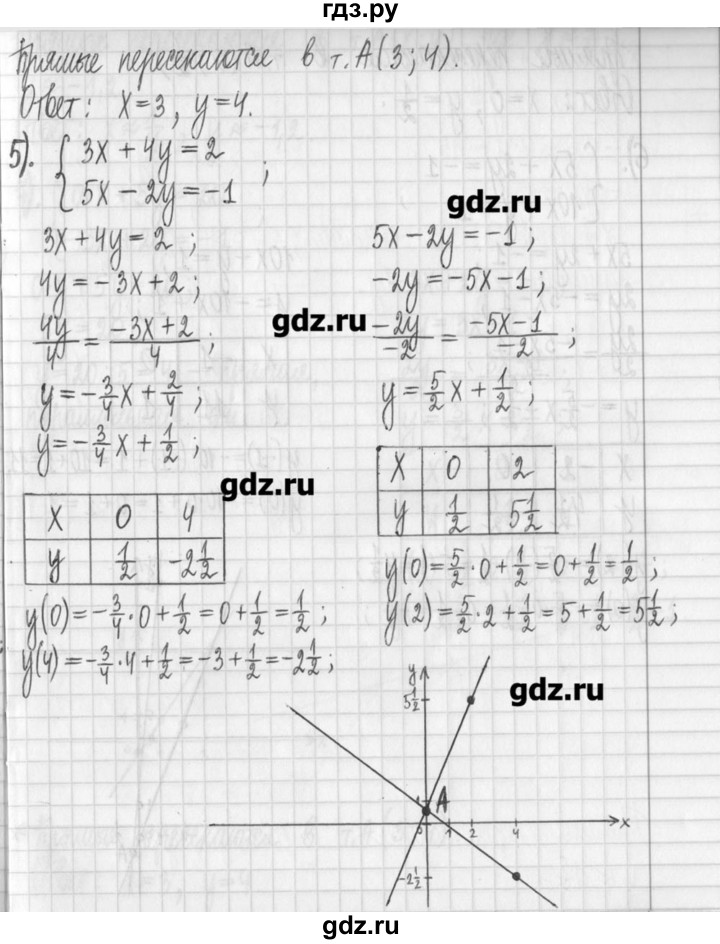 гдз.ру
Прямые пересекаются в т. А(3; 4).
Ответ: x=3, y=4.
5). { 3x + 4y = 2
5x − 2y = −1 ;
gdz.ru
3x + 4y = 2 ;
4y = −3x + 2 ;
4y/4 = (−3x + 2)/4 ;
y = −3/4 x + 2/4 ;
y = −3/4 x + 1/2 ;
gdz.ru
x 0 4
y 1/2 −2 1/2
y(0) = −3/4 · 0 + 1/2 = 0 + 1/2 = 1/2 ;
y(4) = −3/4 · 4 + 1/2 = −3 + 1/2 = −2 1/2 ;
5x − 2y = −1 ;
−2y = −5x − 1 ;
gdz.ru
−2y/−2 = (−5x − 1)/−2 ;
y = 5/2 x + 1/2 ;
x 0 2
y 1/2 5 1/2
y(0) = 5/2 · 0 + 1/2 = 0 + 1/2 = 1/2 ;
y(2) = 5/2 · 2 + 1/2 = 5 + 1/2 = 5 1/2 ;
y
5 1/2
gdz.ru
1 A
0 1 2 4 x
−2 1/2
gdz.ru